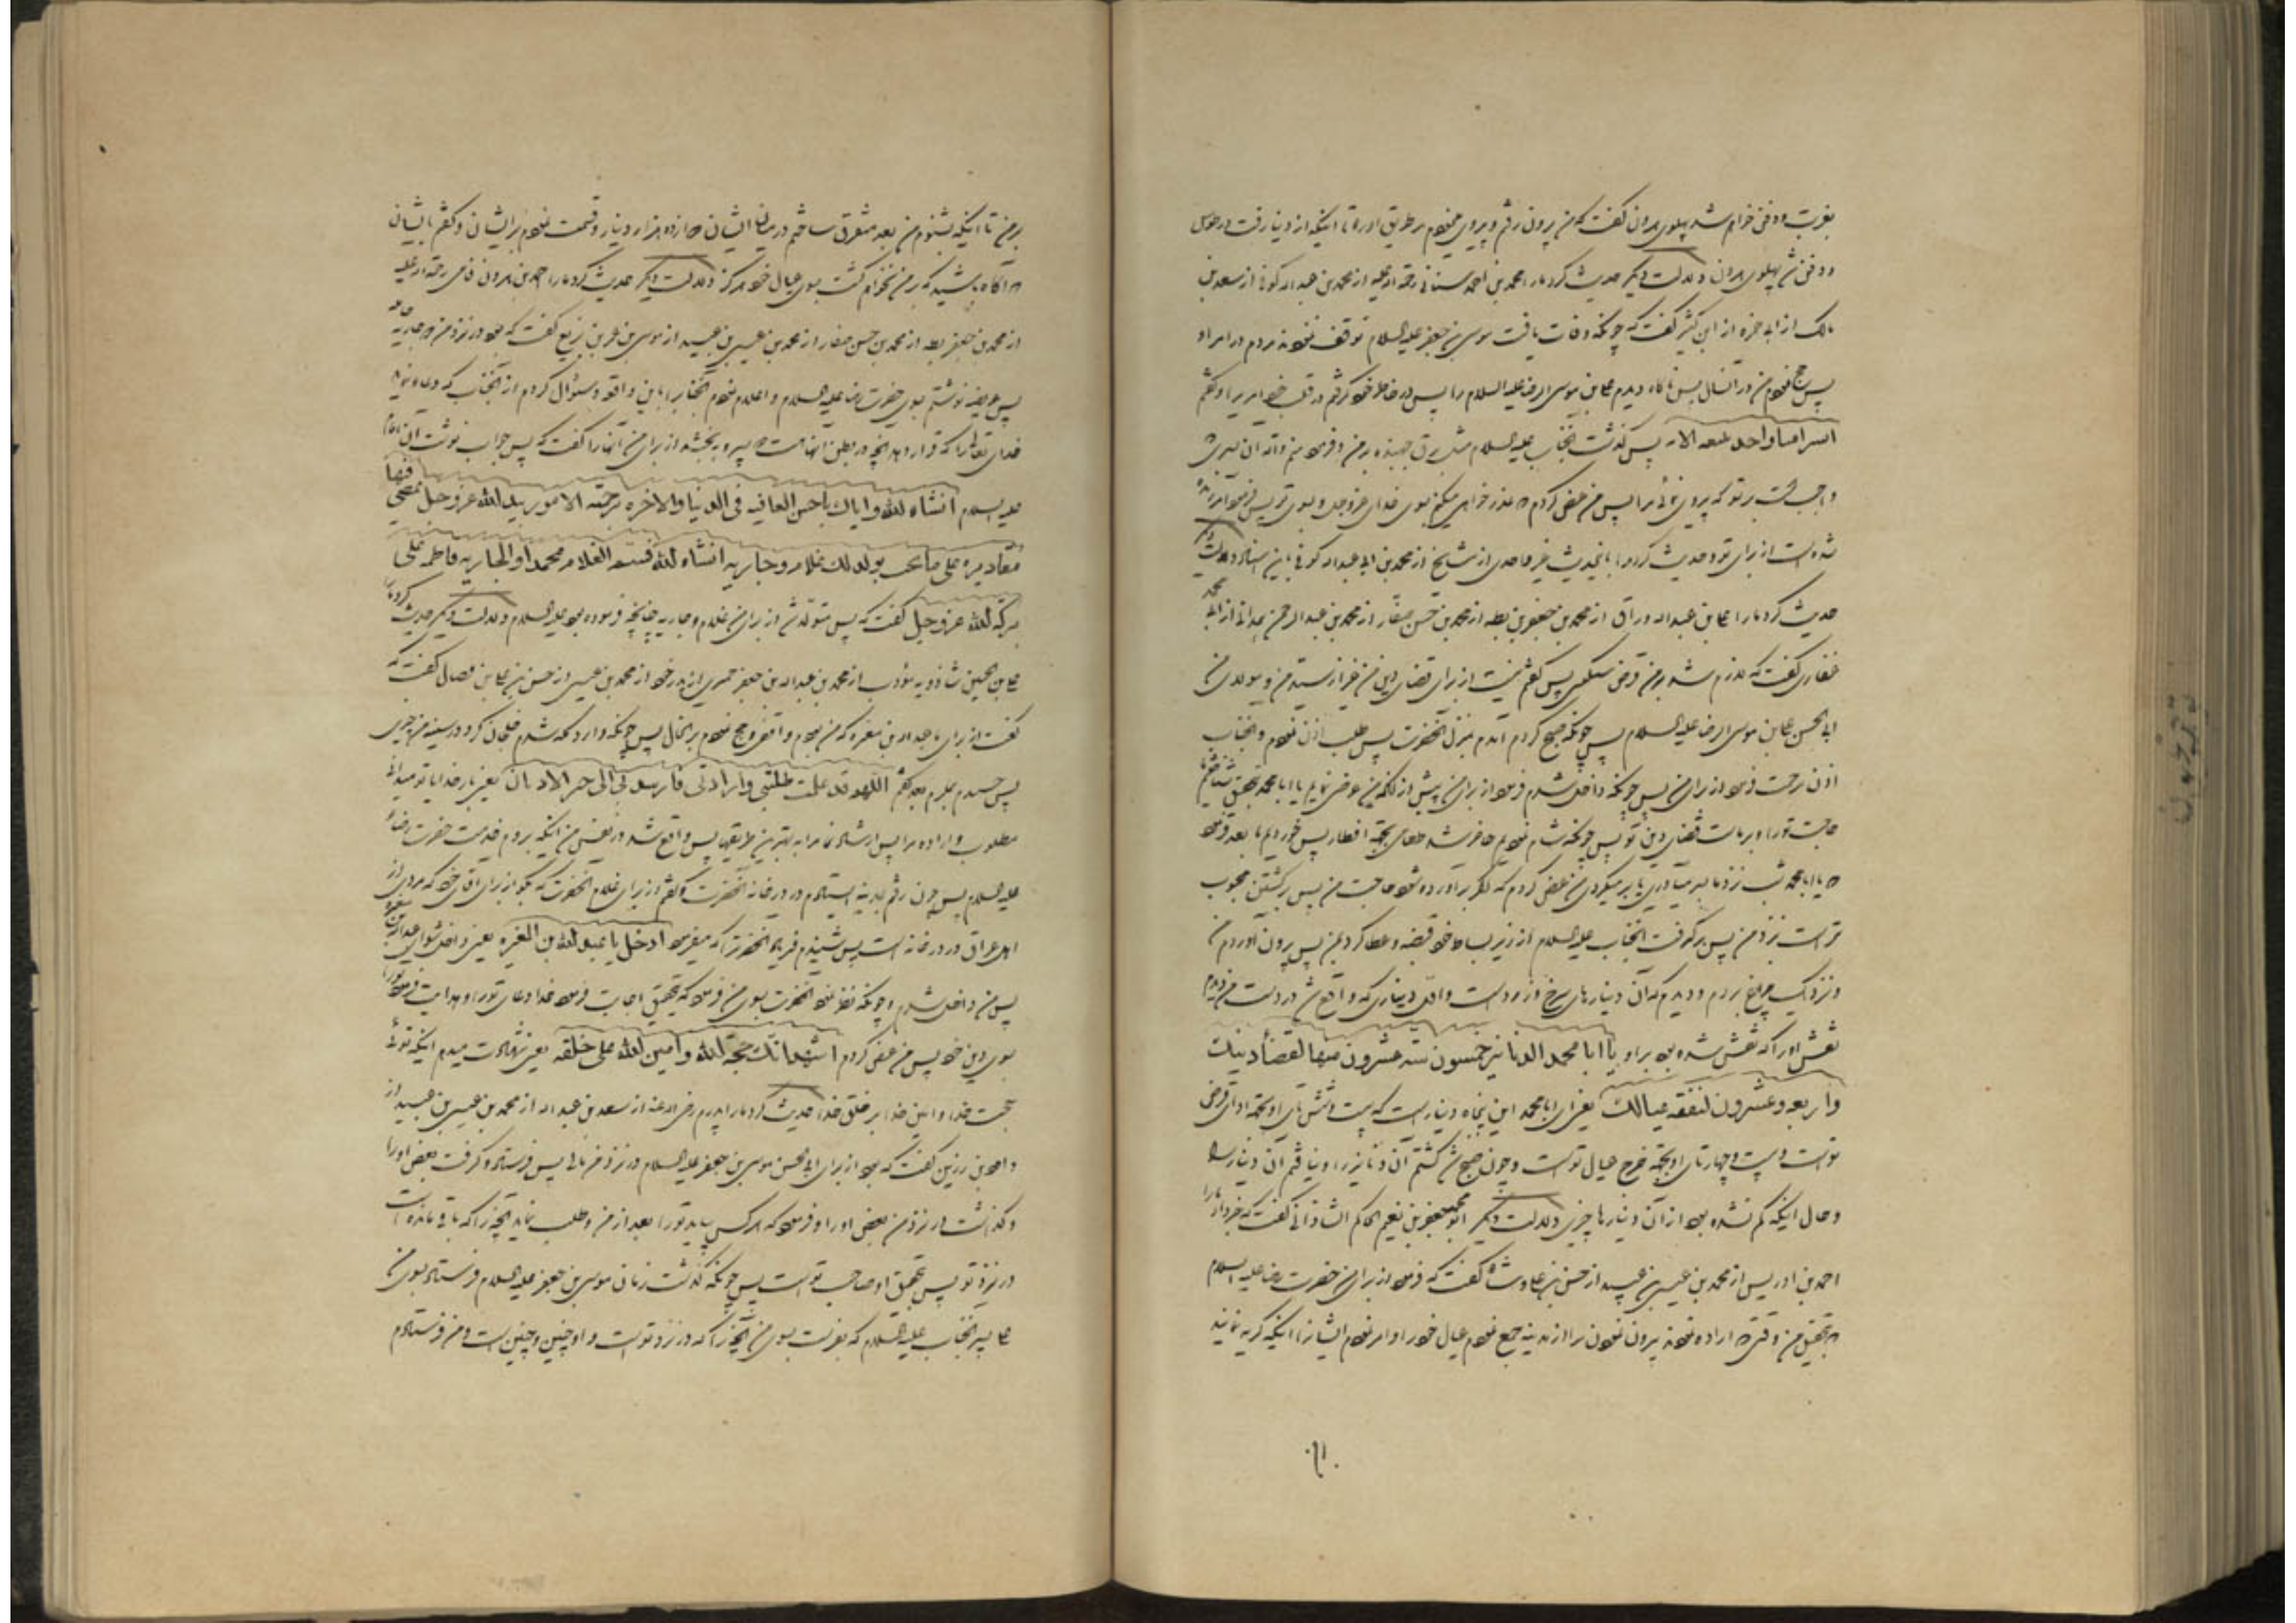 بغربت و دفن خواهم شد پهلوی هرون گفت که من بیرون رفتم و پیروی مینمودم بر طریق او را تا اینکه از دنیا رفت در طوس
و دفن شد پهلوی هرون دلالت دیگر حدیث کرد ما را محمد بن احمد سنانی رحمة الله علیه از محمد بن عبدالله کوفی از سعد بن
مالک از ابی حمزه از ابن کثیر گفت که چونکه وفات یافت موسی بن جعفر علیه السلام توقف نمودند مردم در امر او
پس حج نمودم من در آنسال پس ناگاه دیدم علی بن موسی الرضا علیه السلام را پس در خاطر خود گرفتم در قلب خود امریرا و گفتم
ابشرا منا واحدا نتبعه الایه پس گذشت آنجناب علیه السلام مثل برق جهنده بر من و فرمود منم والله آن بشری
واجبست بر تو که پیروی نمائی مرا پس من عرض کردم عذر خواهی میکنم بسوی خدای عز و جل و بسوی تو پس فرمود آمرزیده
شده است از برای تو و حدیث کردند ما را باینحدیث غیر واحدی از مشایخ از محمد بن ابی عبدالله کوفی باین اسناد دلالت دیگر
حدیث کرد ما را علی بن عبدالله وراق از محمد بن جعفر بن بطه از محمد بن حسن صفار از محمد بن عبدالرحمن همدانی از ابی محمد
غفاری گفت که لازم شد بر من قرض سنگینی پس گفتم نیست از برای قضای دین من غیر از سید من و مولای من
ابی الحسن علی بن موسی الرضا علیه السلام پس چونکه صبح کردم آمدم بمنزل آنحضرت پس طلب اذن نمودم و آنجناب
اذن مرحمت فرمود از برای من پس چونکه داخل شدم فرمود از برای من پیش از آنکه من عرض نمایم یا ابا محمد بتحقیق شناختیم ما
حاجت تو را و بر ماست قضای دین تو پس چونکه شام نمودیم حاضر شد طعامی بجهة افطار پس خوردیم ما بعد فرمود
یا ابا محمد شب نزد ما بسر میآوری یا بر میگردی من عرض کردم که اگر برآورده شود حاجت من پس برگشتن محبوب
تر است نزد من پس برگرفت آنجناب علیه السلام از زیر بساط خود قبضه و عطا کرد بمن پس بیرون آوردم من
و نزدیک چراغ بردم و دیدم که آن دینارهای سرخ و زرد است و اول دیناری که واقع شد در دست من و دیدم
نقش او را که نقش شده بود بر او یا ابا محمد الدنانیر خمسون سته عشرون منها لقضأ دینک
واربعه وعشرون لنفقه عیالک یعنی ای ابا محمد این پنجاه دینار است که بیست و شش تای او بجهة ادای قرض
تو است و بیست و چهار تای او بجهة خرج عیال تو است و چون صبح شد گشتم آن دنانیر را و نیافتم آن دینار را
و حال اینکه کم نشده بود از آن دینارها چیزی دلالت دیگر ابو محمد جعفر بن نعیم الحاکم الشاذانی گفت که خبر داد ما را
احمد بن ادریس از محمد بن عیسی بن عبید از حسن بن علی وشاء گفت که فرمود از برای من حضرت رضا علیه السلام
بتحقیق من وقتی اراده نمودند بیرون نمودن مرا از مدینه جمع نمودم عیال خود را و امر نمودم ایشانرا اینکه گریه نمایند
بر من تا اینکه بشنوم من بعد متفرق ساختم در میان ایشان دوازده هزار دینار و قسمت نمودم بر ایشان و گفتم بایشان
آگاه باشید که بر من نخواهم گشت بسوی عیال خود هرگز دلالت دیگر حدیث کرد ما را احمد بن هرون فامی رحمة الله علیه
از محمد بن جعفر بطه از محمد بن حسن صفار از محمد بن عیسی بن عبید از موسی بن عمر بن بزیع گفت که بود در نزد من دو جاریه حامله
پس عریضه نوشتم بسوی حضرت رضا علیه السلام و اعلام نمودم آنجناب را باین واقعه و سئوال کردم از آنجناب که دعا نماید
خدای تعالی را که قرار دهد آنچه در بطن آنهاست پسر و ببخشد از برای من آنها را گفت که پس جواب نوشت آن امام
علیه السلام انشاء الله وایاک باحسن العافیه فی الدنیا والاخره برحمته الامور بید الله عز وجل یمضی فیها
مقادیره علی ما یحب یولد لک غلام وجاریه انشاء الله فسم الغلام محمد او الجاریه فاطمه علی
برکه الله عز وجل گفت که پس متولد شد از برای من غلام و جاریه چنانچه فرموده بود علیه السلام دلالت دیگر حدیث کرد ما را
علی بن الحسین شاذویه مؤدب از محمد بن عبدالله بن جعفر حمیری از پدر خود از محمد بن عیسی از حسن بن علی بن فضال گفت که
گفت از برای ما عبدالله بن مغیره که من بودم واقفی و حج نمودم بر آنحال پس چونکه وارد مکه شدم خلجان کرد در سینه من چیزی
پس چسبیدم بملتزم بعد گفتم اللهم قد علمت طلبتی وارادتی فارشدنی الی خیر الادیان یعنی بار خدایا تو میدانی
مطلوب و اراده مرا پس ارشاد نما مرا به بهترین طریقها پس واقع شد در نفس من اینکه بروم خدمت حضرت رضا
علیه السلام پس چون رفتم بمدینه ایستادم در در خانه آنحضرت و گفتم از برای غلام آنحضرت که بگو از برای آقای خود که مردی از
اهل عراق در در خانه است پس شنیدم فریاد آنحضرت را که میفرمود ادخل یا عبد الله بن المغیره یعنی داخل شو ای عبدالله بن مغیره
پس من داخل شدم و چونکه نظر نمود آنحضرت بسوی من فرمود که بتحقیق اجابت فرمود خدا دعای تو را و هدایت فرمود تو را
بسوی دین خود پس من عرض کردم اشهد انک حجة الله وامین الله علی خلقه یعنی شهادت میدهم اینکه توئی
حجت خدا و امین خدا بر خلق خدا حدیث کرد ما را پدرم رضی الله عنه از سعد بن عبدالله از محمد بن عیسی بن عبید از
داود بن رزین گفت که بود از برای ابی الحسن موسی بن جعفر علیه السلام در نزد من مالی پس فرستاد و گرفت بعض او را
و گذاشت در نزد من بعض او را و فرمود که هر کس بیاید تو را بعد از من و طلب نماید آنچه را که باقی مانده است
در نزد تو پس بتحقیق او صاحب تو است پس چونکه گذشت زمان موسی بن جعفر علیه السلام فرستاد بسوی من
علی پسر آنجناب علیه السلام که بفرست بسوی من آنچه را که در نزد تو است و او چنین و چنین است و من فرستادم